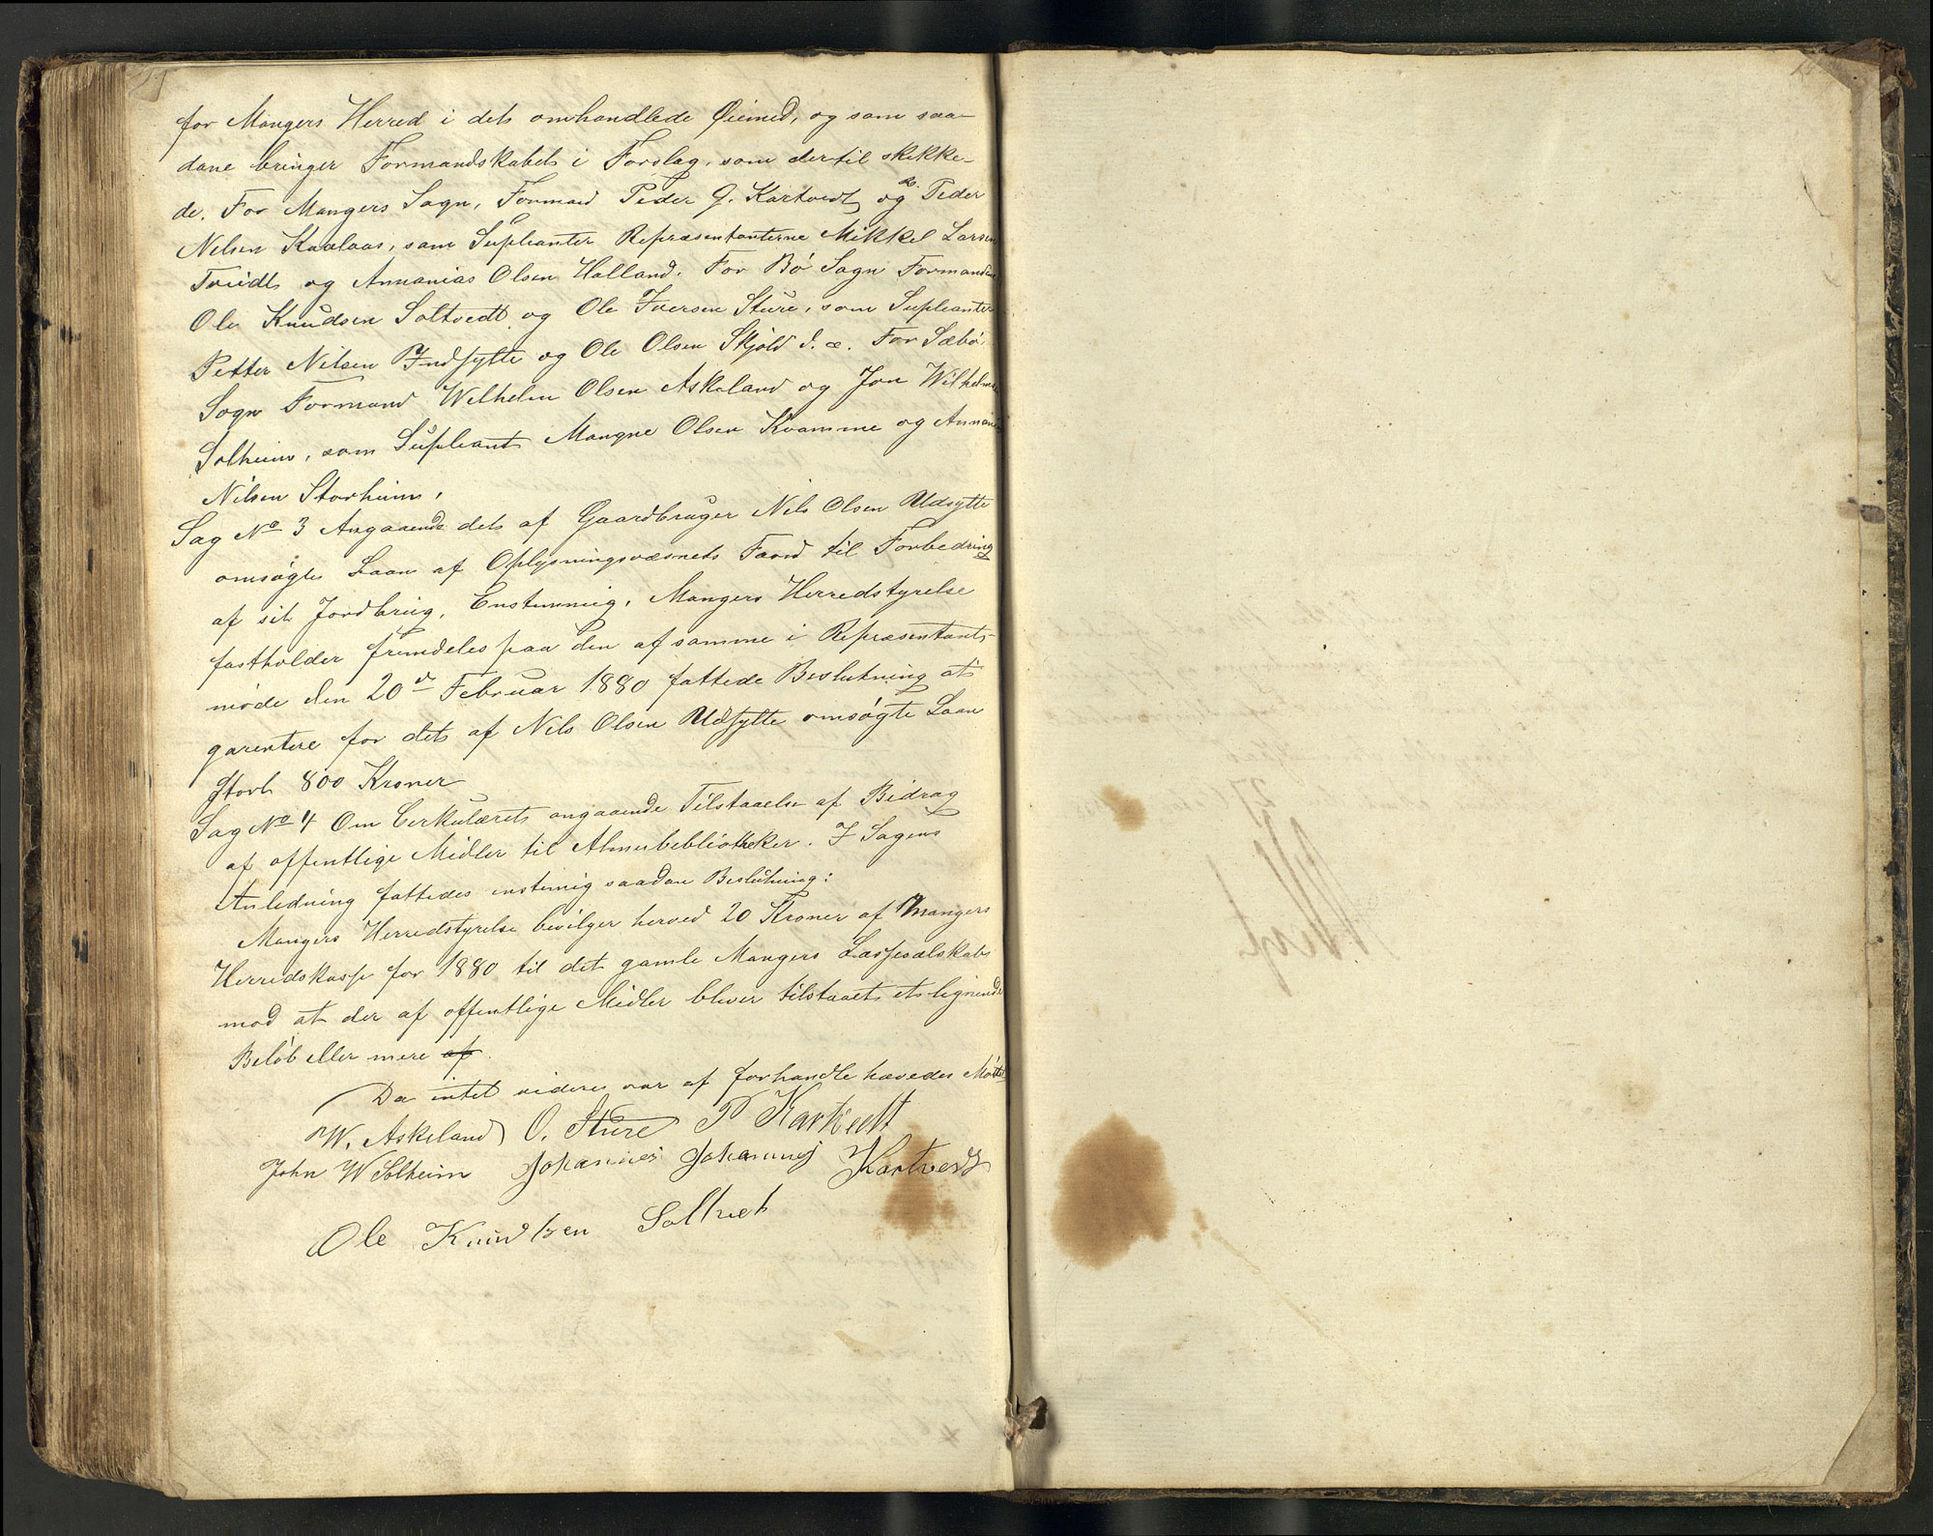 for Mangers Herred i dets omhandlede Øiemed, og som saa-
dane bringer Formandskabet i Forslag, som dertil skikke-
de. For Mangers Sogn, Formænd Peder J. Kartvedt og R. Peder
Nilsen Kaalaas, som Supleanter Repræsentanterne Mikkel Larsen
Tvedt og Annanias Olsen Halland. For Bø Sogn Formændene
Ole Knudsen Soltvedt og Ole Iversen Sture, som Supleanter
Petter Nilsen Indsytte og Ole Olsen Skjold d. æ. For Sæbø
Sogn Formænd Welhelm Olsen Askeland og Jon Wilhelmsen
Solheim, som Supleant Mangne Olsen Kvamme og Annanias
Nilsen Storheim.
Sag No 3 Angaaende det af Gaardbruger Nils Olsen Udsytte
omsøgte Laan af Oplysningsvæsnets Fond til Forbedring
af sit Jordbrug. Enstemmig. Mangers Herredstyrelse
fastholder fremdeles paa den af samme i Repræsentant-
møde den 20d Februar 1880 fattede Beslutning at
garentere for det af Nils Olsen Udsytte omsøgte Laan
stort 800 Kroner
Sag No 4 Om Cerkulæret angaaende Tilstaaelse af Bidrag
af offentlige Midler til Almuebibliotheker. I Sagens
Anledning fattedes enstemig saadan Beslutning:
Mangers Herredstyrelse bevilger herved 20 Kroner af Mangers
Herredskasse for 1880 til det gamle Mangers Læseselskab
mod at der af offentlige Midler bliver tilstaaet et lignende
Beløb eller mere af.
Da intet videre var af forhandle hævedes Mødet
W. Askeland O. Sture P Kartvedt
John W Solheim Johannes Johannes Kartvedt
Ole Knudtsen Soltvet